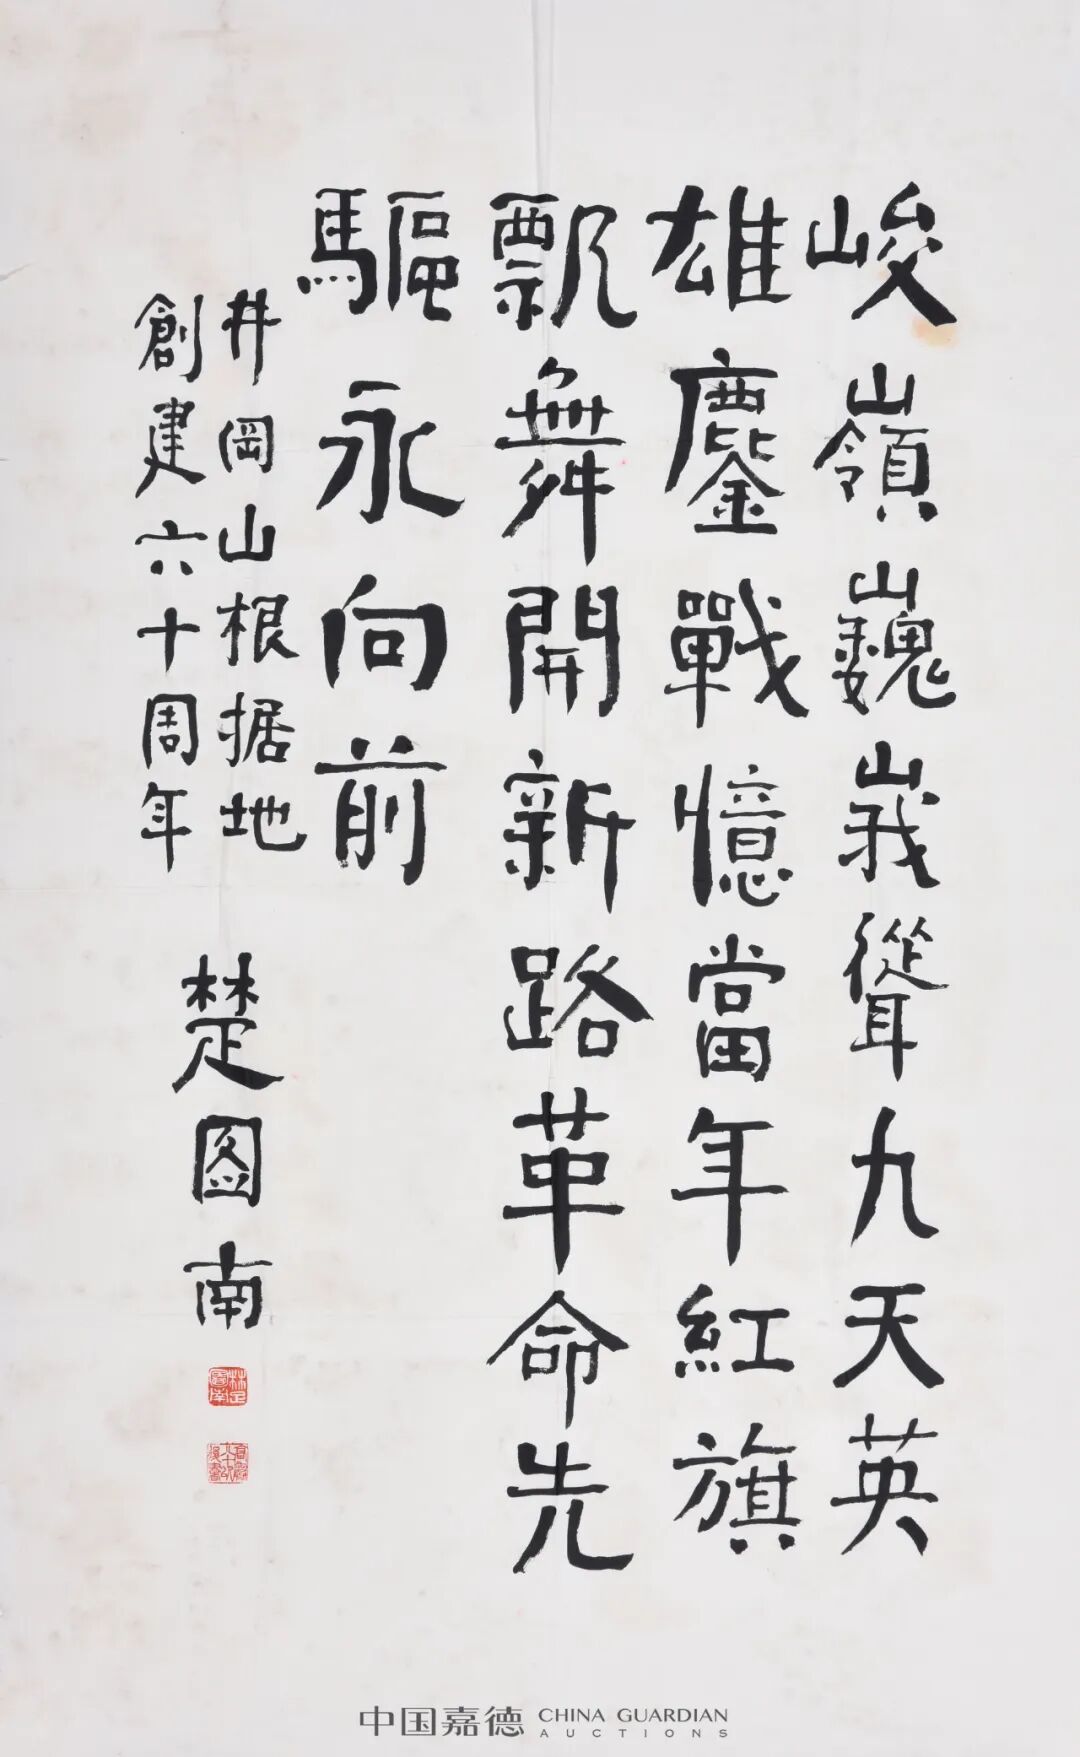 峻嶺巍峩聳九天英
雄鏖戰憶當年紅旗
飄舞開新路革命先
驅永向前
井岡山根据地
創建六十周年
楚图南
楚圖南
中国嘉德 CHINA GUARDIAN
AUCTIONS